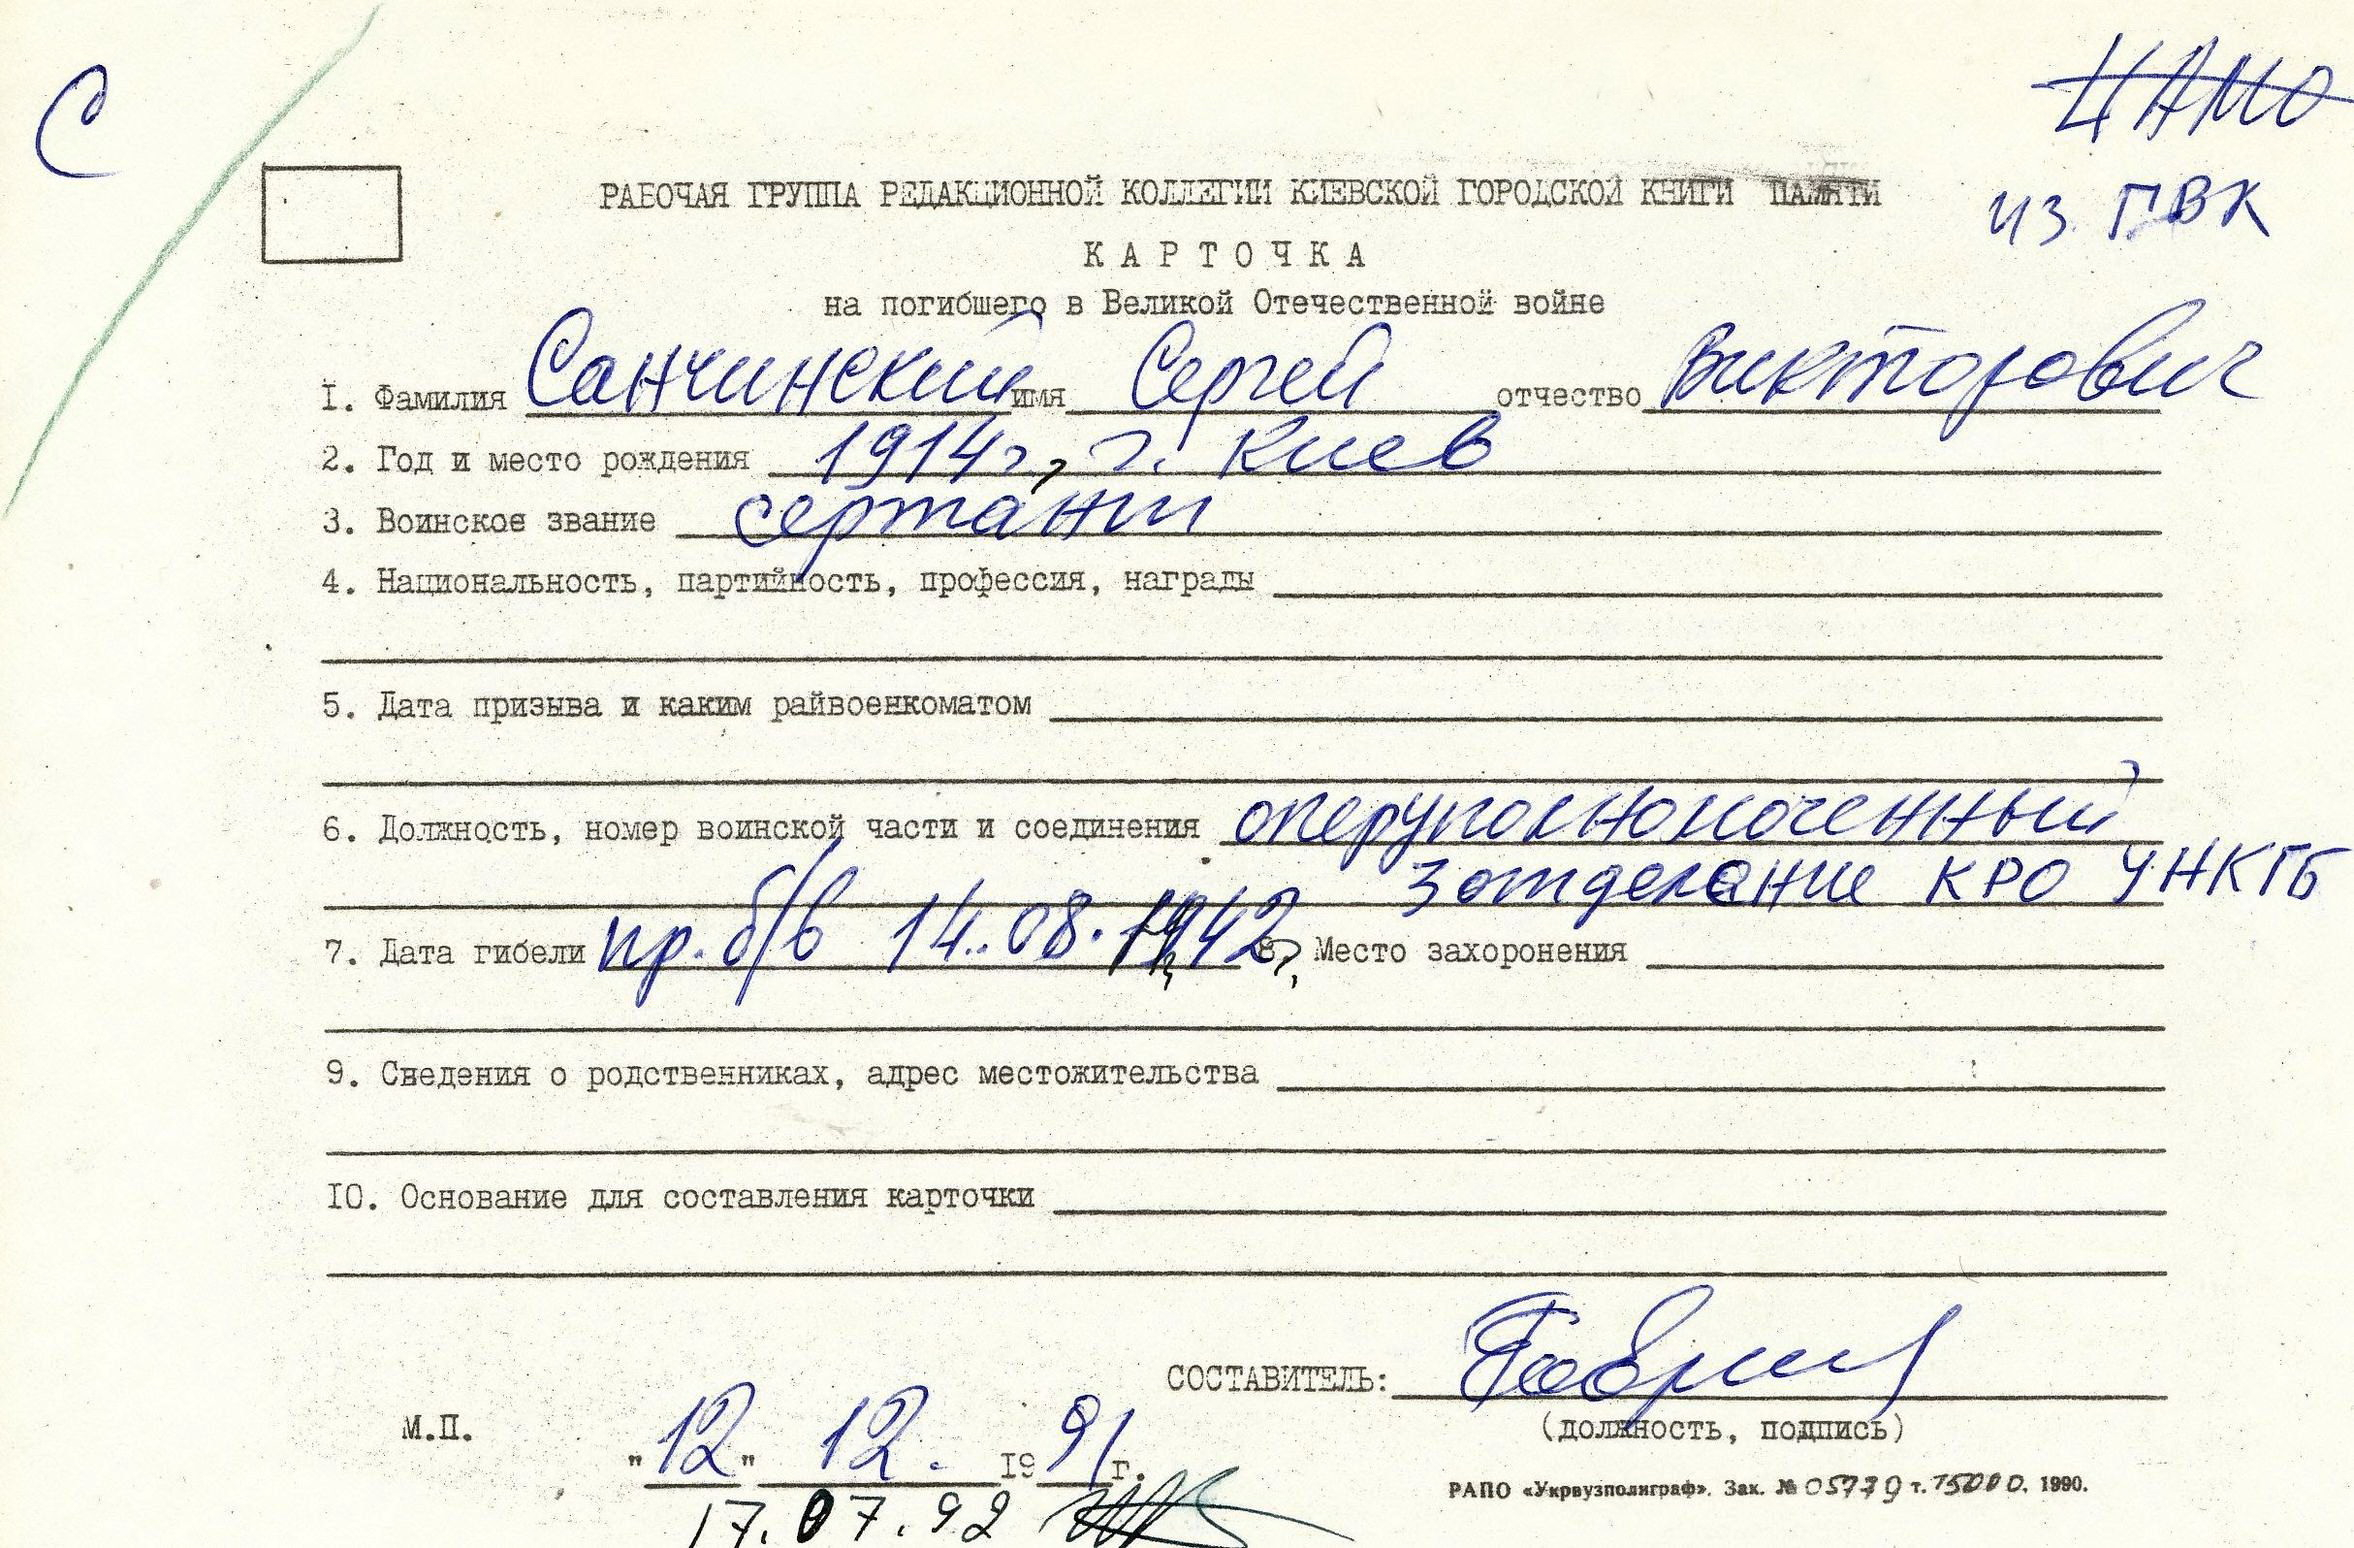 С
ЦАМО
из ГВК
РАБОЧАЯ ГРУППА РЕДАКЦИОННОЙ КОЛЛЕГИИ КИЕВСКОЙ ГОРОДСКОЙ КНИГИ ПАМЯТИ
КАРТОЧКА
на погибшего в Великой Отечественной войне
I. Фамилия Санчинский имя Сергей отчество Викторович
2. Год и место рождения 1914г, г. Киев
3. Воинское звание сержант
4. Национальность, партийность, профессия, награды
5. Дата призыва и каким райвоенкоматом
6. Должность, номер воинской части и соединения оперуполномоченный
3 отделение КРО УНКГБ
7. Дата гибели пр. б/в 14.08.1942 8. Место захоронения
9. Сведения о родственниках, адрес местожительства
IO. Основание для составления карточки
СОСТАВИТЕЛЬ:
(должность, подпись)
М.П.
"12" 12. 1991 г.
17.07.92
РАПО «Укрвузполиграф». Зак. № 05779 т. 15000. 1990.